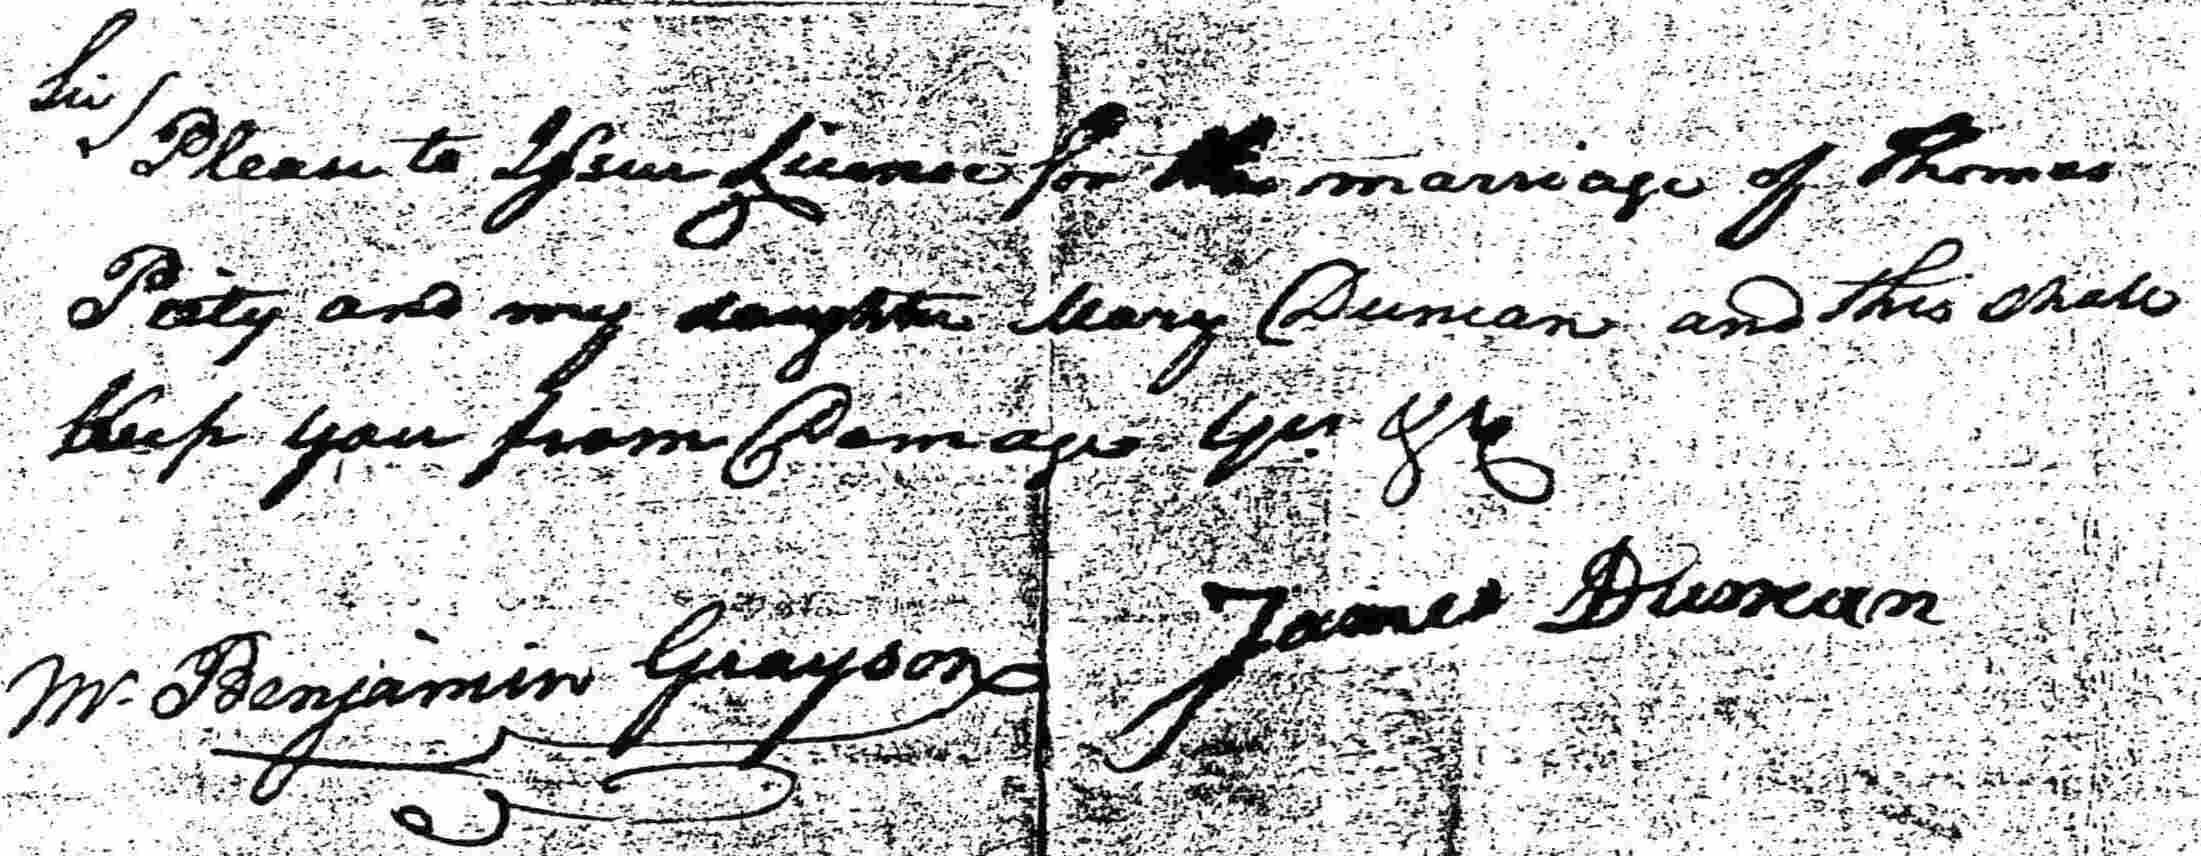 Sir
Please to Issue Licence for the marriage of Thomas
and my daughter Mary Duncan and this shale
keep you from Damage Yrs. &c
James Duncan
Mr. Benjamin Grayson